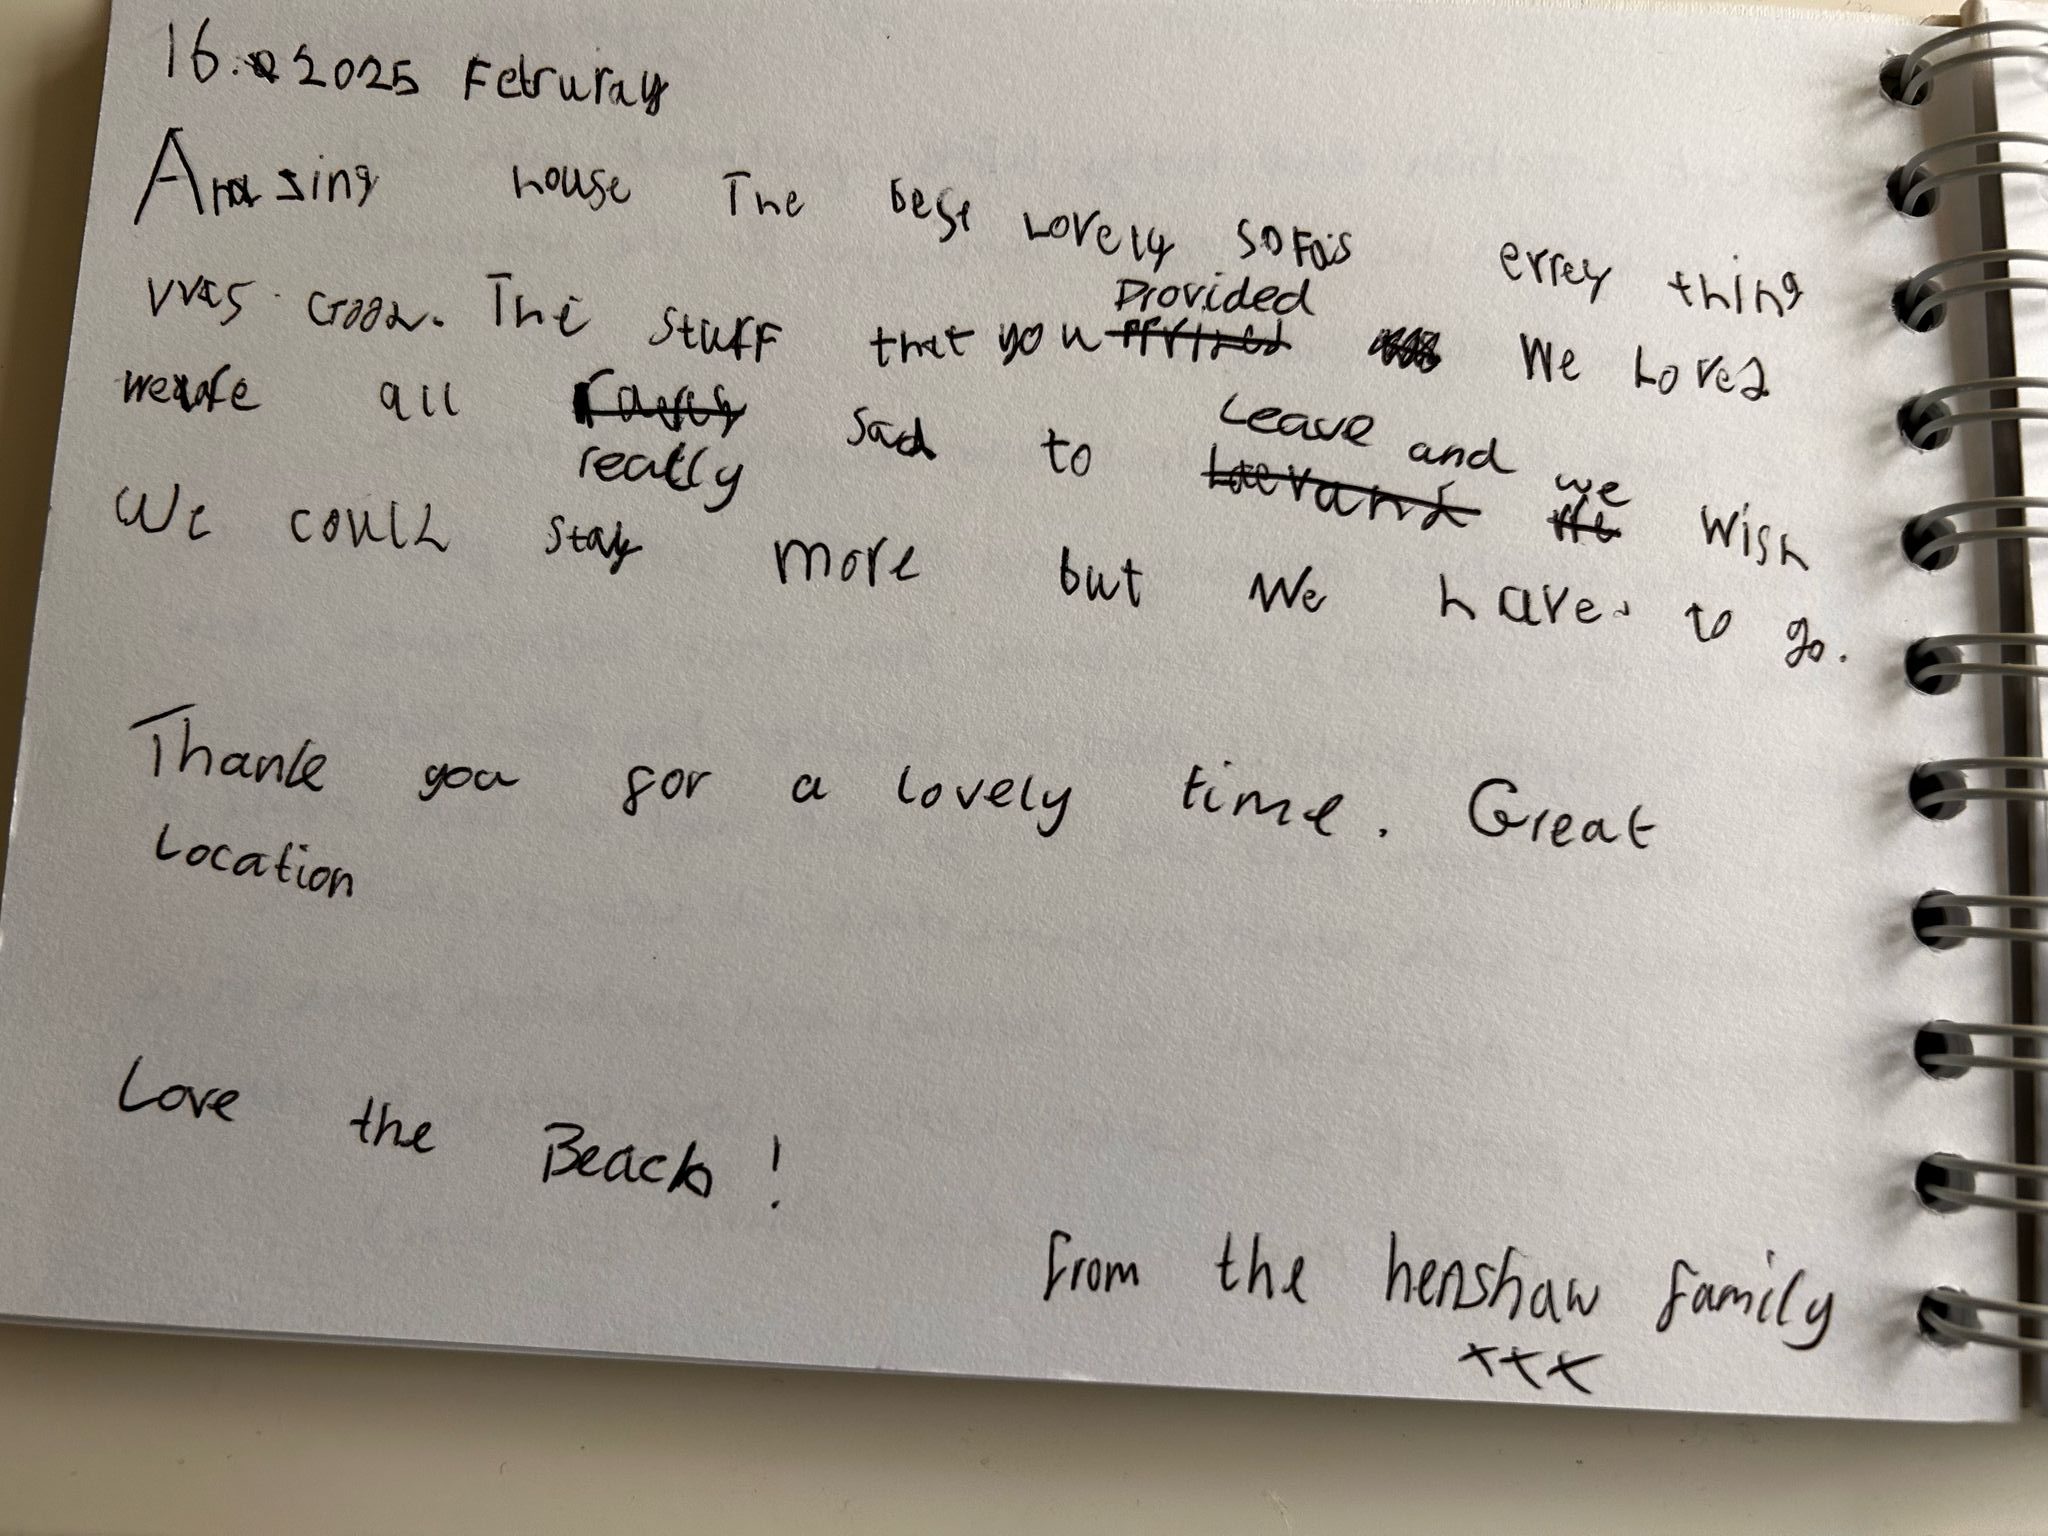 16. 2025 Februray
Amazing house The best Lovely sofais errey thing
was Good. The stuff that you Provided We Loved
weare all really sad to Leave and we wish
We could stay more but We have to go.
Thank you for a lovely time. Great
Location
Love the Beach!
from the henshaw family
xxx